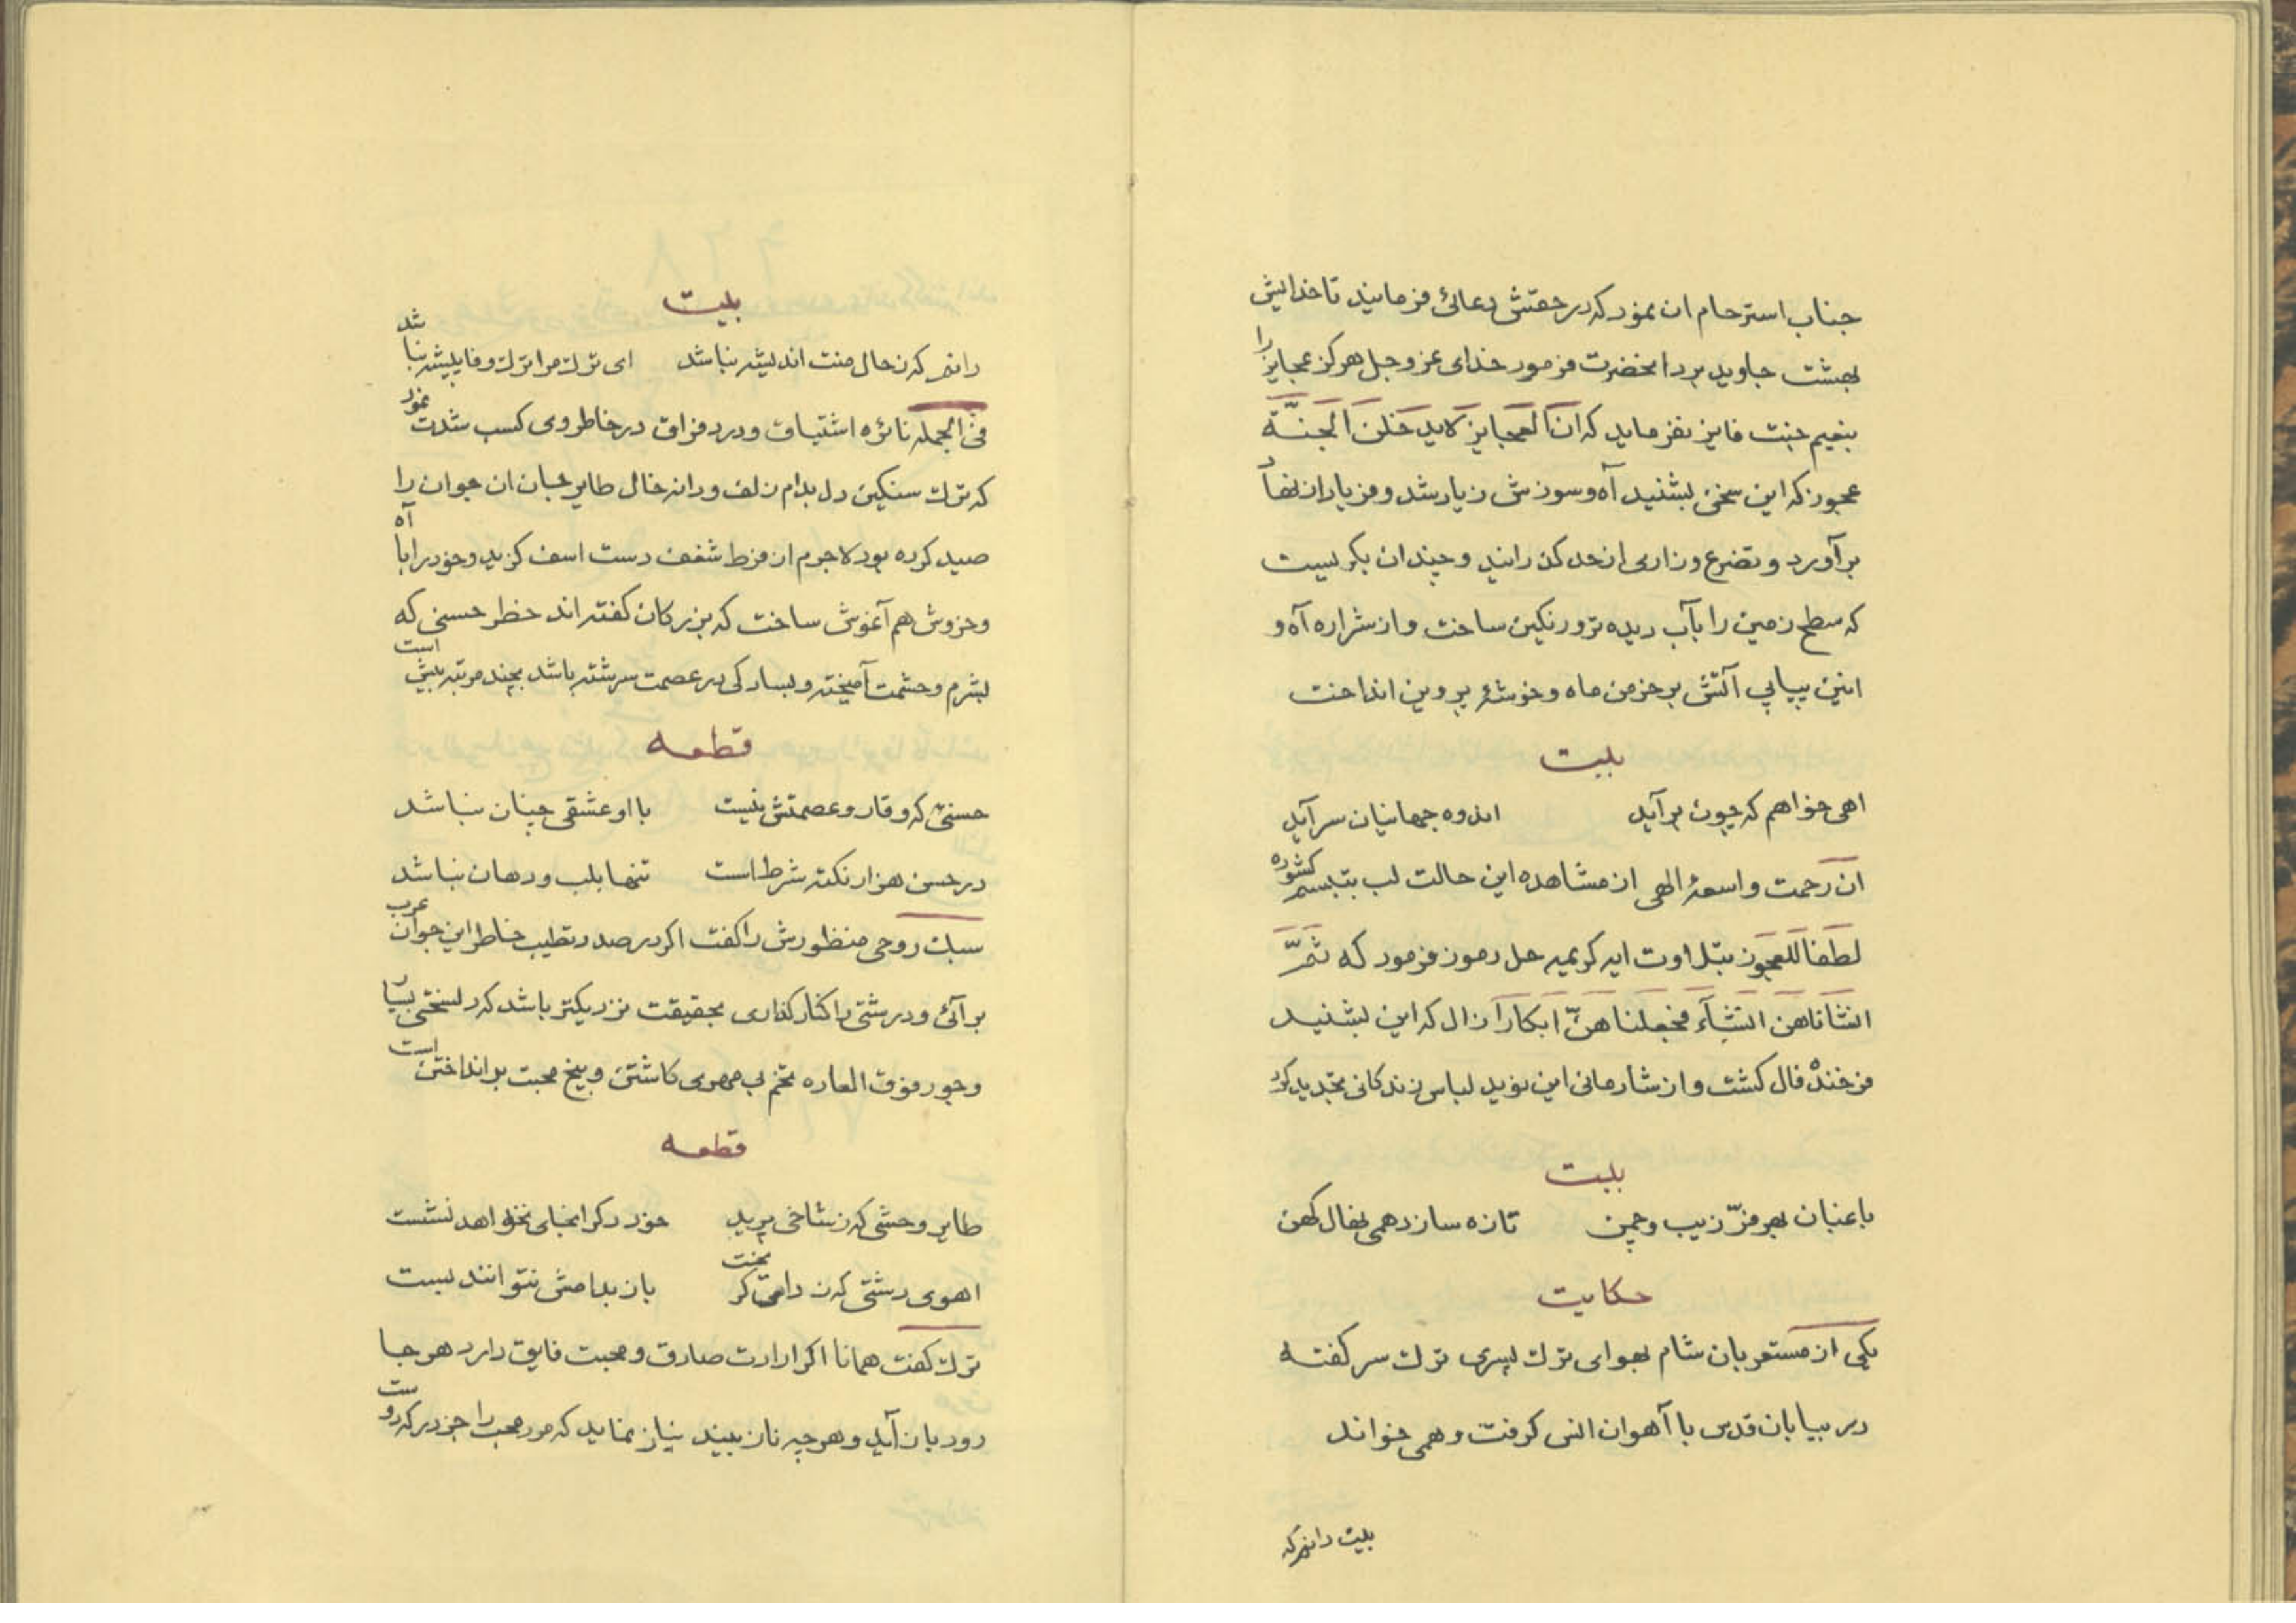 جناب استرحام ان نمود که در حقتش دعائی فرمایند تا خدایش
بهشت جاوید برد انحضرت فرمود خدای عز وجل هرکز عجایز را
بنعیم جنت فایز نفرماید که ان العجایز لاید خلن الجنّة
عجوز که این سخن بشنید آه وسوزش زیاد شد و فریاد از نهاد
برآورد و تضرع وزاری از حد کذرانید وچندان بکریست
که سطح زمین را بآب دیده تر ورنکین ساخت واز شراره آه و
انین پیاپی آتش بر خرمن ماه وخوشهٔ پروین انداخت
بیت
اهی خواهم که چون برآید اندوه جهانیان سرآید
ان رحمت واسعهٔ الهی از مشاهده این حالت لب بتبسم کشوده
لطفا للعجوز بتلاوت ایه کریمیه حل رموز فرمود که ثمّ
انشاناهن انشآء فجعلناهنّ ابکارا زال که این بشنید
فرخنده فال کشت واز شادمانی این نوید لباس زندکانی تجدید کرد
بیت
باغبان بهر فرّ زیب وچمن تازه سازد همی نهال کهن
حکایت
یکی از مستعربان شام بهوای ترك پسری ترك سر کفته
در بیابان قدس با آهوان انس کرفت وهمی خواند
بیت دانم که
بیت
دانم که ز حال منت اندیشه نباشد ای ترك مرا ترك وفا پیشه نباشد
فی الجمله نائره اشتیاق ودرد فراق در خاطر وی کسب شدت نمود
که ترك سنکین دل بدام زلف ودانه خال طایر جان ان جوان را
صید کرده بود لاجرم از فرط شغف دست اسف کزید وخود را با آه
وخروش هم آغوش ساخت که بزرکان کفته اند حظر حسنی که
بشرم وحشمت آمیخته وبسادکی در عصمت سرشته باشد بچند مرتبه بیش است
قطعه
حسنی که وقار وعصمتش نیست با او عشقی چنان نباشد
در حسن هزار نکته شرط است تنها بلب ودهان نباشد
سبك روحی منظورش را کفت اکر در صدد تطیب خاطر این جوان عرب
برآئی ودرشتی را کنار کذاری بحقیقت نزدیکتر باشد که دلسختی بسیار
وجور فوق العاده تخم بی مهری کاشتن وبیخ محبت برانداختن است
قطعه
طایر وحشی که ز شاخی پرید خود دکر انجای نخواهد نشست
اهوی دشتی که ز دامی کریخت باز بدامش نتوانند بست
ترك کفت همانا اکر ارادت صادق ومحبت فایق دارد هر جا
رود باز آید وهر چه ناز بیند نیاز نماید که مرد محب را جز درکه دوست